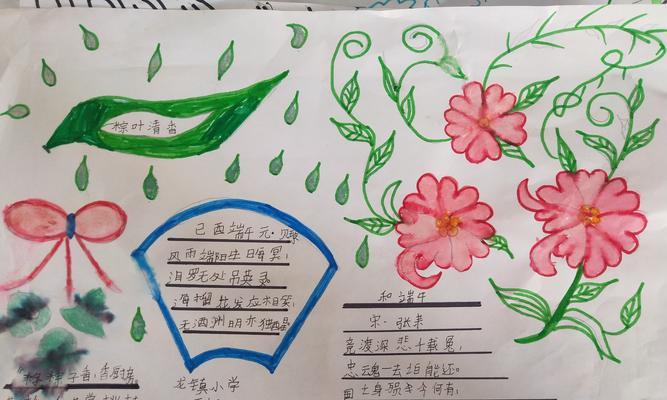 粽叶清香
己酉端午 元·贝琼
风雨端阳生晦冥,
汨罗无处吊英灵。
海榴花发应相笑,
无酒渊明亦独醒
和端午
宋·张耒
竞渡深悲千载冤,
忠魂一去讵能还。
国亡身殒今何有,
粽子香,香厨房
龙镇小学